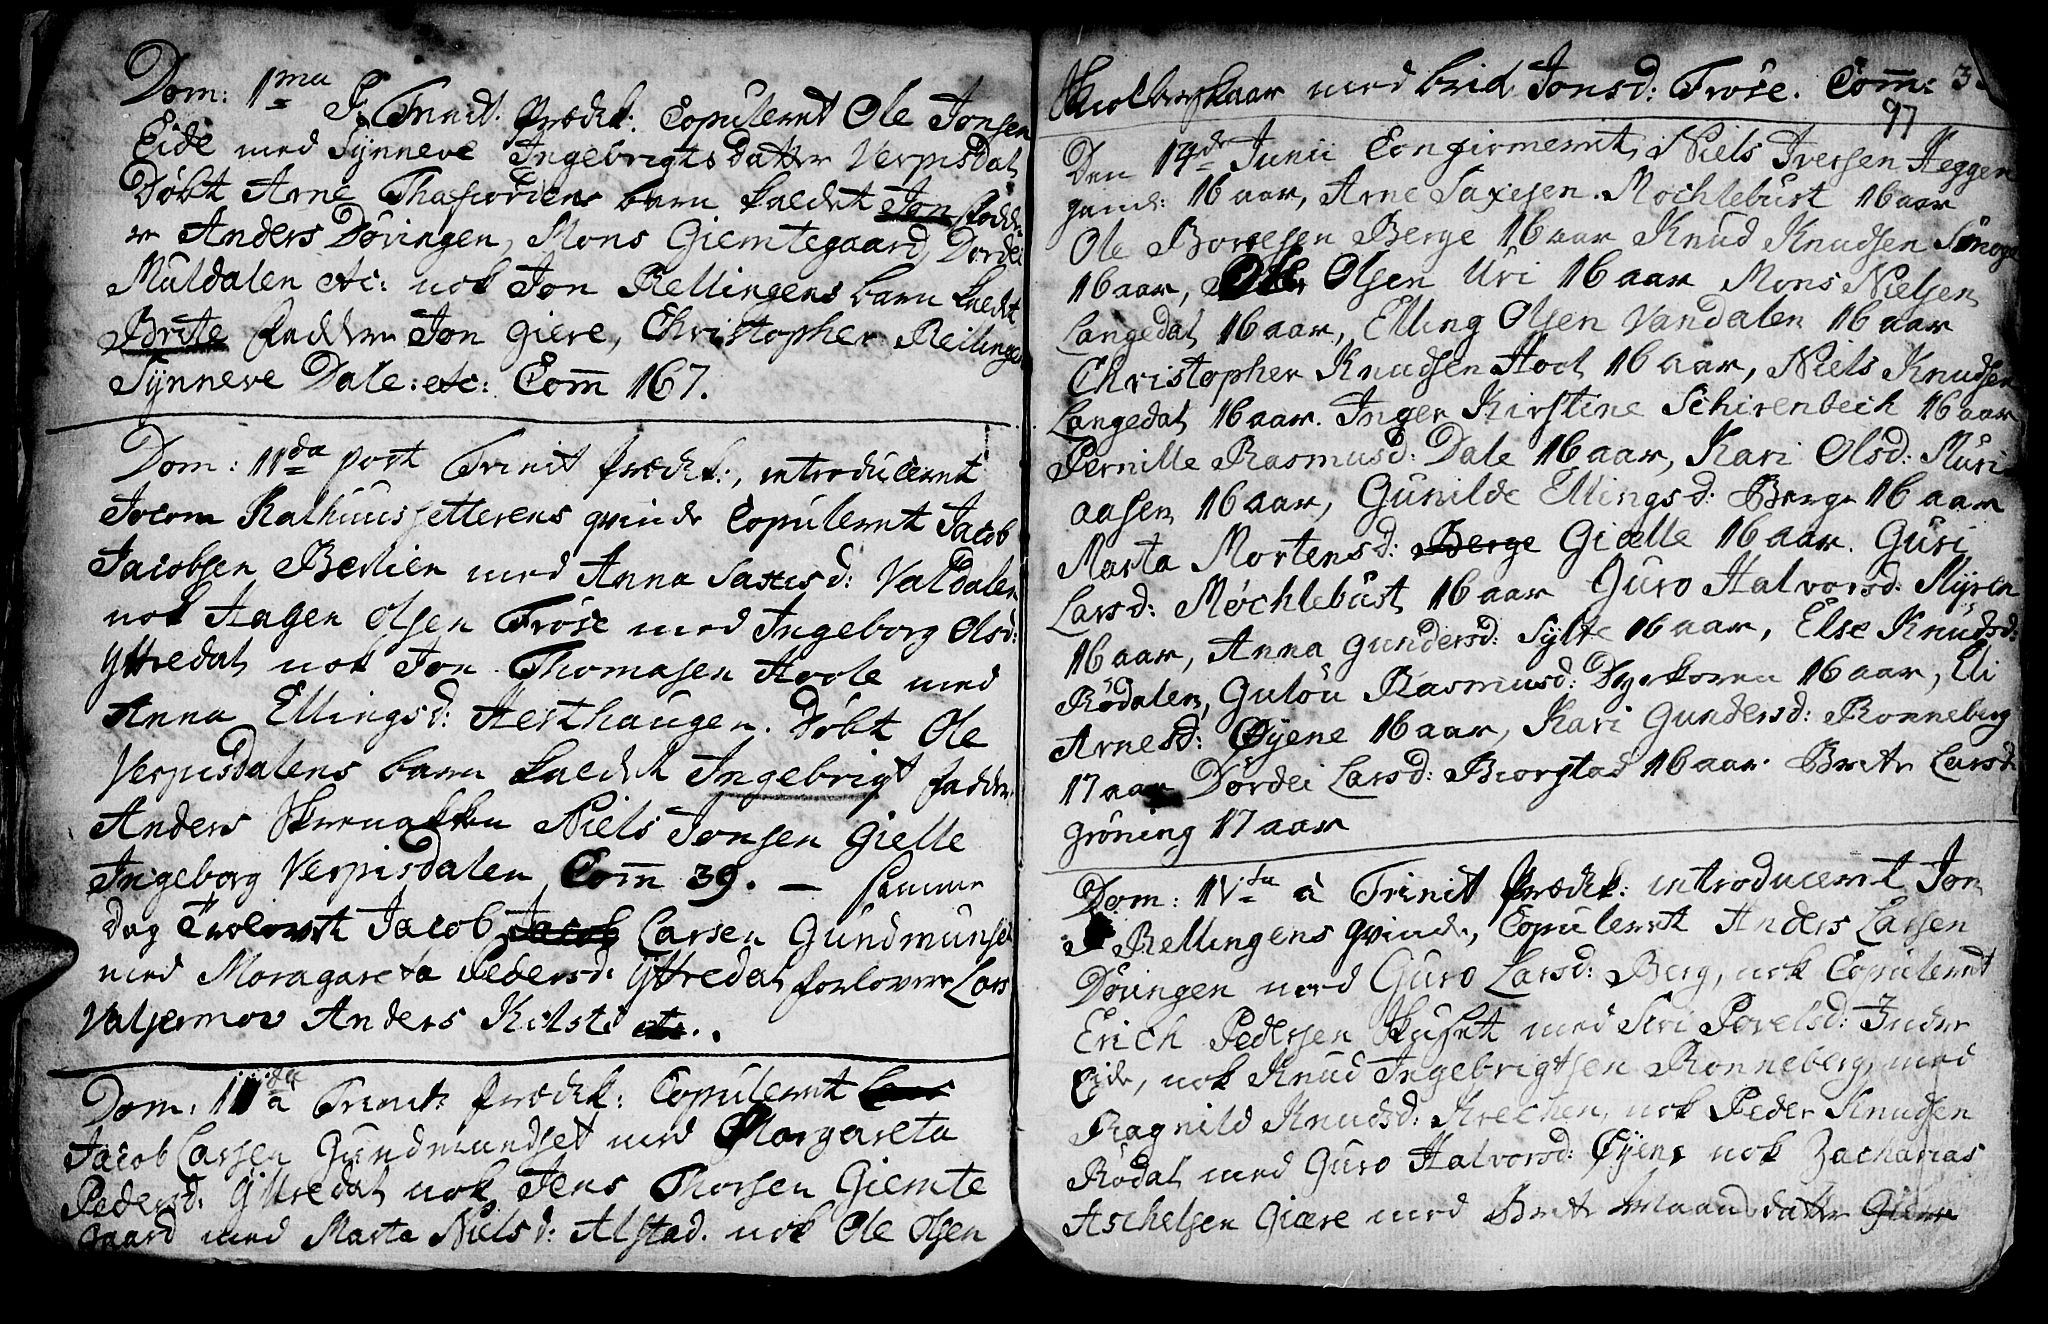 Dom: 1ma P. Trinit. Prædik: Copuleret Ole Jonsen
Eide med Synneve Ingebrigtsdatter Verpisdal
Døbt Arne barn kaldet Jon fadde-
r Anders Døvingen, Mons Giemtegaard, Dordei
Muldalen etc: nok Jon Rellingens barn kaldt
Brite faddere Jon Giere, Christopher Rellingen
Synneve Dale: etc: Com̄ 167.
Dom: 11da post Trinit prædik:, introduceret
Jocom Kalhuussetterens qvinde Copuleret Jacob
Jacobsen Berlien med Anna Saxesd: Valdalen
nok Hagen Olsen Frøse med Ingeborg Olsd:
Yttredal nok Jon Thomasen Hoole med
Anna Ellingsd: Hesthaugen. Døbt Ole
Verpisdalens barn kaldet Ingebrigt faddere
Anders Skrenakken Niels Jonsen Gielle
Ingeborg Verpisdalen Com̄ 39. — samme
dag Troloved Jacob Jacob Larsen Gundmunset
med Moragareta Pedersd: Yttredal forlovere Lars
Valdermoe Anders Kilsti etc.
Dom: 111 à Trinit: prædik: Copuleret Lars
Jacob Larsen Gundmundset med Margareta
Pedersd: Yttredal nok Jens Thorsen Giemte
gaard med Marta Nielsd: Alstad. nok Ole Olsen
skaar med brid Jonsd: Frøse. Com̄: 3
97
Den 14de Junii Confirmeret, Niels Iversen Heggen
16 aar, Arne Saxesen Mochlebust 16 aar
Ole Berge 16 aar Knud Knudsen Smoge
16 aar, Ole Olsen Uri 16 aar Mons Nielsen
Langedal 16 aar, Elling Olsen Vandalen 16 aar
Christopher Knudsen Hool 16 aar, Niels Knudsen
Langedal 16 aar. Inger Kirstine Schirenbech 16 aar
Pernille Rasmusd: Dale 16 aar, Kari Olsd: Muri-
aasen 16 aar, Gunilde Ellingsd: Berge 16 aar
Marta Mortensd: Berge Gielle 16 aar. Guri
Larsd: Møchlebust 16 aar Guro Halvorsd: Myren
16 aar, Anna Gundersd: Sylte 16 aar, Else Knudsd:
Rødalen, Gulou Rasmusd: Dyrkoren 16 aar, Eli
Arnesd: Øyene 16 aar, Kari Gundersd: Ronneberg
17 aar Dordei Larsd: Biorstad 16 aar. Brite Larsd
Grøning 17 aar
Dom: 1Vta à Trinit prædik: introduceret Jon
Rellingens qvinde, Copuleret Anders Larsen
Døvingen med Guro Larsd: Berg, nok Copuleret
Erich Pedersen med Siri Povelsd: Indre
Eide, nok Knud Ingebrigtsen Ronneberg, med
Ragnild Knudsd: Krechen, nok Peder Knudsen
Rødal med Guro Halvorsd: Øyene nok Zacharias
Aschelsen Giære med Brite datter Giere